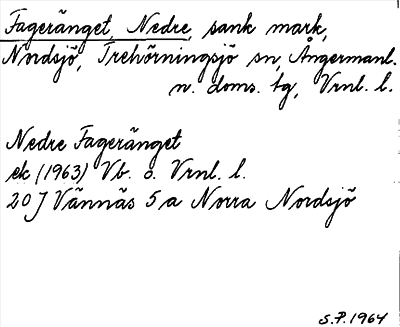 Fageränget, Nedre, sank mark,
Nordsjö, Trehörningsjö sn, Ångermanl.
n. doms. tg, Vrnl. l.
Nedre Fageränget
ek (1963) Vb. o. Vrnl. l.
20J Vännäs 5a Norra Nordsjö
S.P. 1964